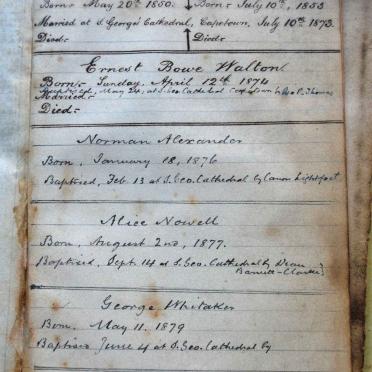 Born:- May 20th 1850. Born:- July 10th, 1853
Married at S. George's Cathedral, Capetown, July 10th 1873.
Died:- Died:-
Ernest Bowe Walton.
Born:- Sunday, April 12th 1874
Baptised, May 24, at S. Geo. Cathedral Capetown by
Married:-
Died:-
Norman Alexander
Born, January 18, 1876
Baptised, Feb 13 at S. Geo. Cathedral by Canon Lightfoot
Alice Nowell
Born, August 2nd, 1877.
Baptised, Sept. 14 at S. Geo. Cathedral by Dean
Barnett-Clarke
George Whitaker
Born, May 11, 1879
Baptised June 4 at S. Geo. Cathedral by